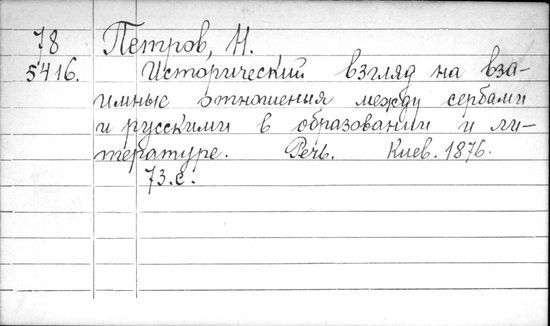 78 Петров, Н.
5416. Исторический взгляд на вза-
имные отношения между сербами
и русскими в образовании и ли-
тературе. Речь. Киев. 1876.
73.с.